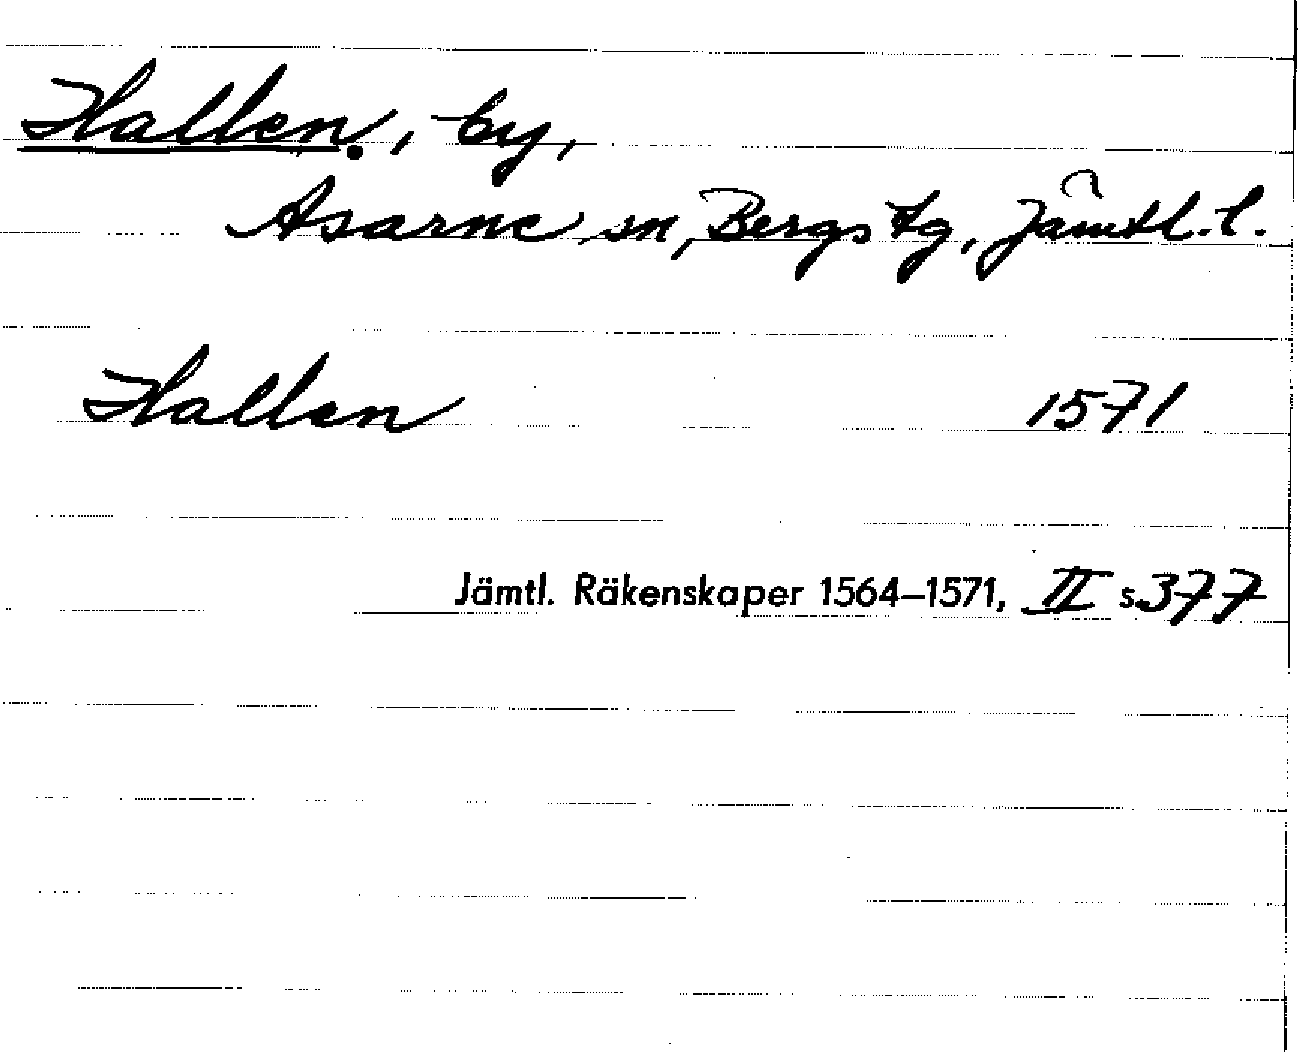 Hallen., by,
Asarne sn, Bergs tg, Jämtl. l.
Hallen 1571
Jämtl. Räkenskaper 1564–1571, II s. 377